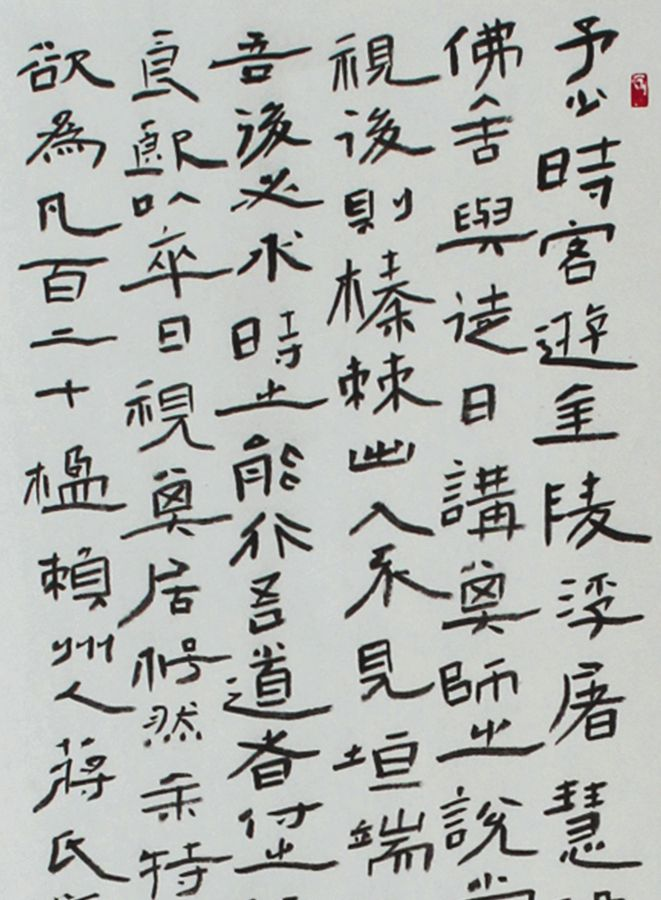 予少時客遊金陵浮屠慧
佛舍與徒日講其師之說
視後則榛棘出人不見垣端
吾後必求時之能行吾道者付之
食飲以卒日視其居枵然余特
欲為凡百二十楹賴州人蔣氏